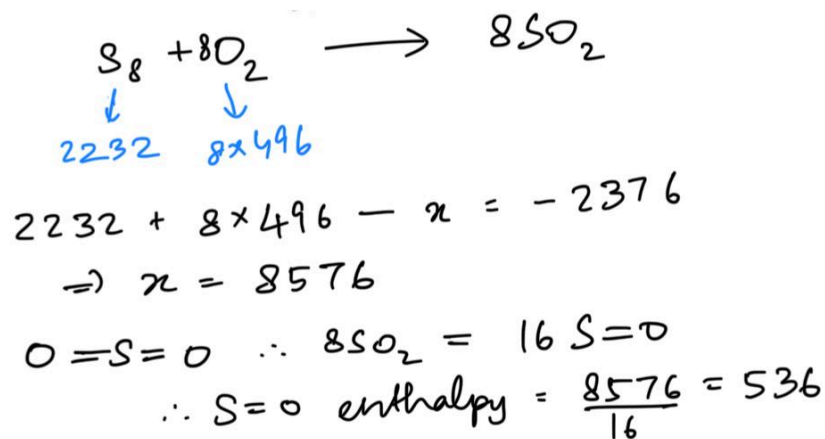 S₈ + 8O₂ ⟶ 8SO₂
↓ ↓
2232 8×496
2232 + 8×496 — x = - 2376
⇒ x = 8576
O=S=O ∴ 8SO₂ = 16 S=O
∴ S=O enthalpy = 8576/16 = 536